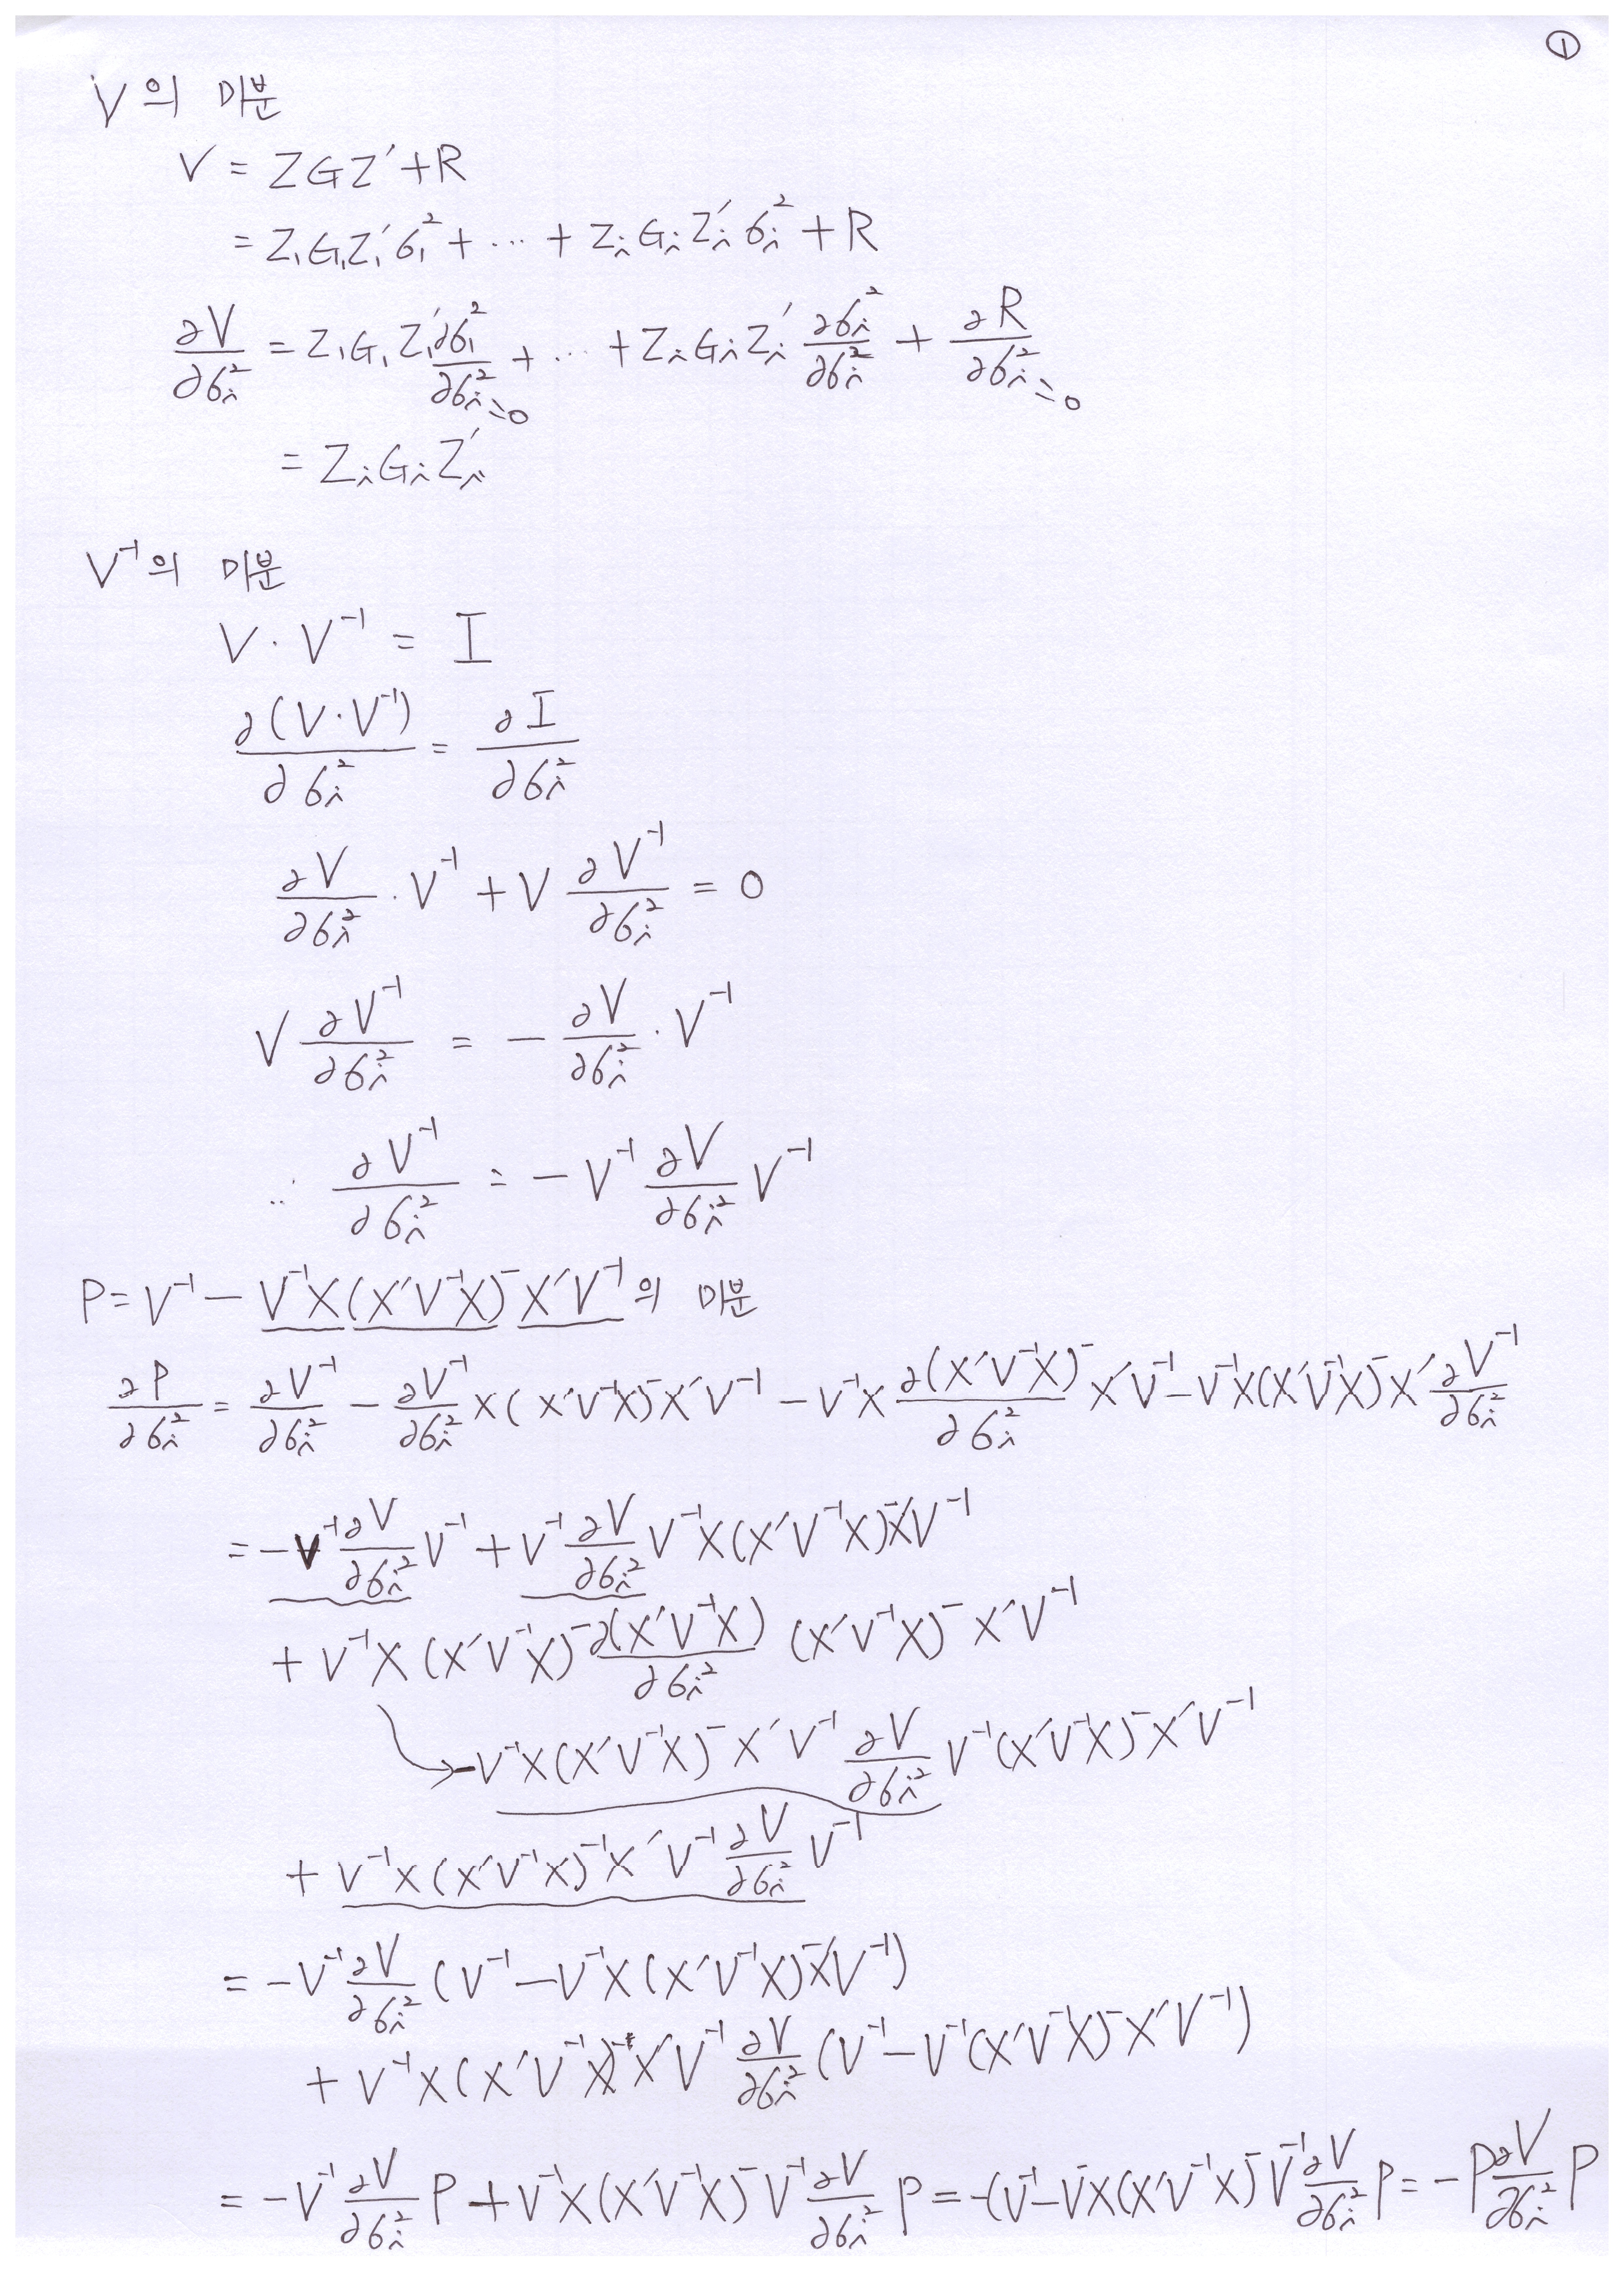 ①
V의 미분
V = ZGZ′ + R
= Z₁G₁Z₁′σ₁² + ⋯ + ZᵢGᵢZᵢ′σᵢ² + R
∂V/∂σᵢ² = Z₁G₁Z₁′ ∂σ₁²/∂σᵢ² + ⋯ + ZᵢGᵢZᵢ′ ∂σᵢ²/∂σᵢ² + ∂R/∂σᵢ²
=0 =0
= ZᵢGᵢZᵢ′
V⁻¹의 미분
V · V⁻¹ = I
∂(V·V⁻¹)/∂σᵢ² = ∂I/∂σᵢ²
∂V/∂σᵢ² · V⁻¹ + V ∂V⁻¹/∂σᵢ² = 0
V ∂V⁻¹/∂σᵢ² = − ∂V/∂σᵢ² · V⁻¹
∴ ∂V⁻¹/∂σᵢ² = − V⁻¹ ∂V/∂σᵢ² V⁻¹
P = V⁻¹ − V⁻¹X(X′V⁻¹X)⁻X′V⁻¹의 미분
∂P/∂σᵢ² = ∂V⁻¹/∂σᵢ² − ∂V⁻¹/∂σᵢ² X(X′V⁻¹X)⁻X′V⁻¹ − V⁻¹X ∂(X′V⁻¹X)⁻/∂σᵢ² X′V⁻¹ − V⁻¹X(X′V⁻¹X)⁻X′ ∂V⁻¹/∂σᵢ²
= −V⁻¹ ∂V/∂σᵢ² V⁻¹ + V⁻¹ ∂V/∂σᵢ² V⁻¹X(X′V⁻¹X)⁻X′V⁻¹
+ V⁻¹X(X′V⁻¹X)⁻ ∂(X′V⁻¹X)/∂σᵢ² (X′V⁻¹X)⁻X′V⁻¹
→ −V⁻¹X(X′V⁻¹X)⁻X′V⁻¹ ∂V/∂σᵢ² V⁻¹(X′V⁻¹X)⁻X′V⁻¹
+ V⁻¹X(X′V⁻¹X)⁻¹X′V⁻¹ ∂V/∂σᵢ² V⁻¹
= −V⁻¹ ∂V/∂σᵢ² (V⁻¹ − V⁻¹X(X′V⁻¹X)⁻X′V⁻¹)
+ V⁻¹X(X′V⁻¹X)⁻X′V⁻¹ ∂V/∂σᵢ² (V⁻¹ − V⁻¹(X′V⁻¹X)⁻X′V⁻¹)
= −V⁻¹ ∂V/∂σᵢ² P + V⁻¹X(X′V⁻¹X)⁻V⁻¹ ∂V/∂σᵢ² P = −(V⁻¹ − V⁻X(X′V⁻¹X)⁻V⁻¹ ∂V/∂σᵢ² P = −P ∂V/∂σᵢ² P